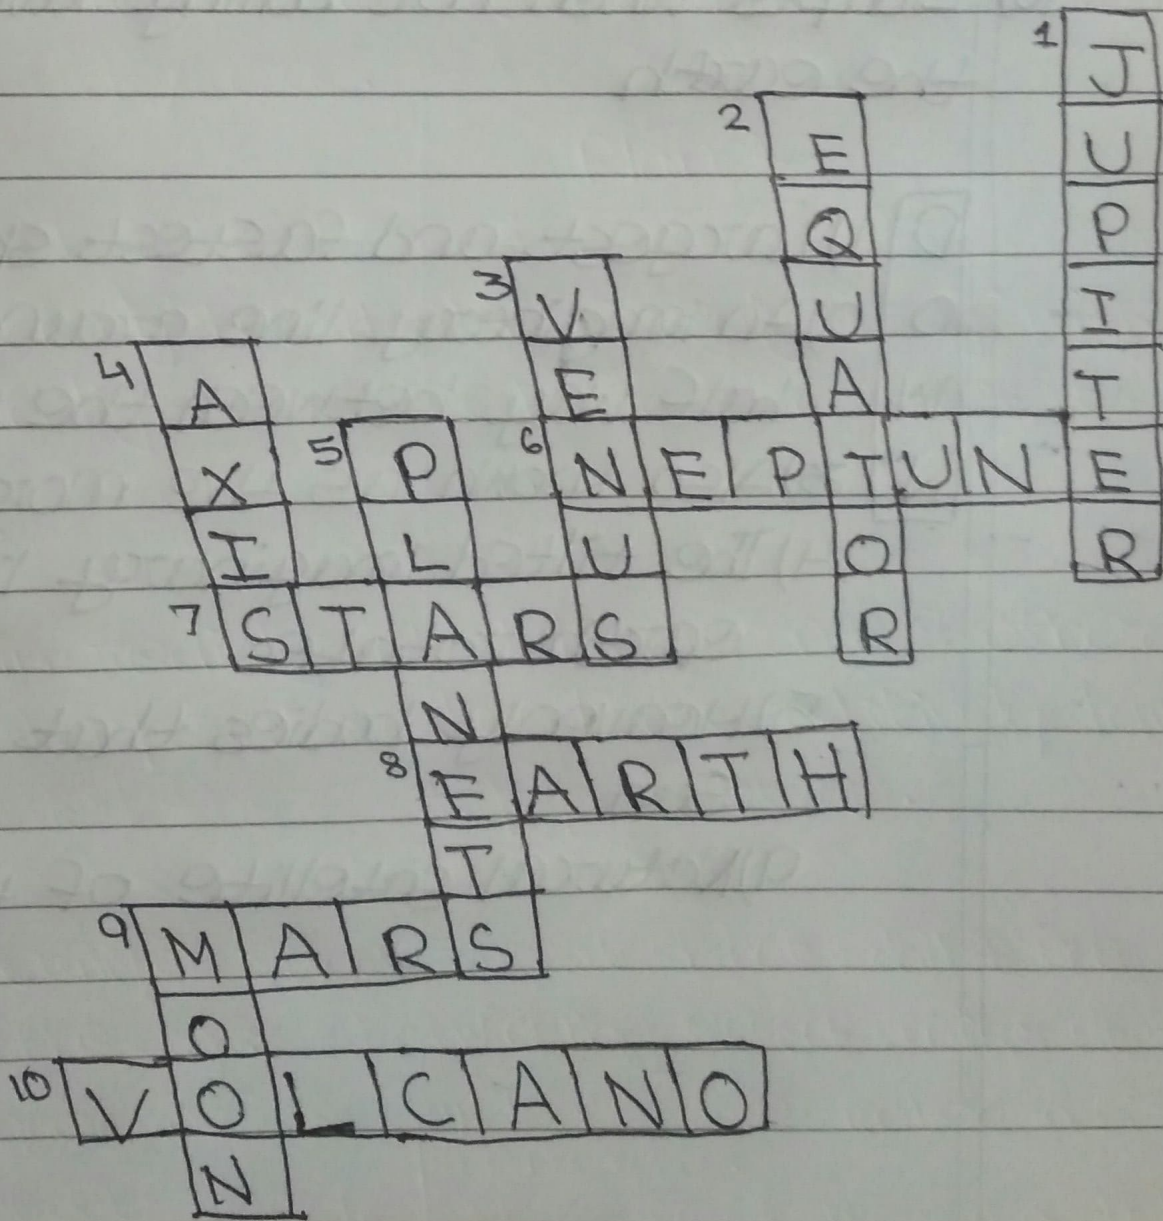 1 JUPITER
2 EQUATOR
3 VENUS
4 AXIS
5 PLANETS
6 NEPTUNE
7 STARS
8 EARTH
9 MARS
MOON
10 VOLCANO